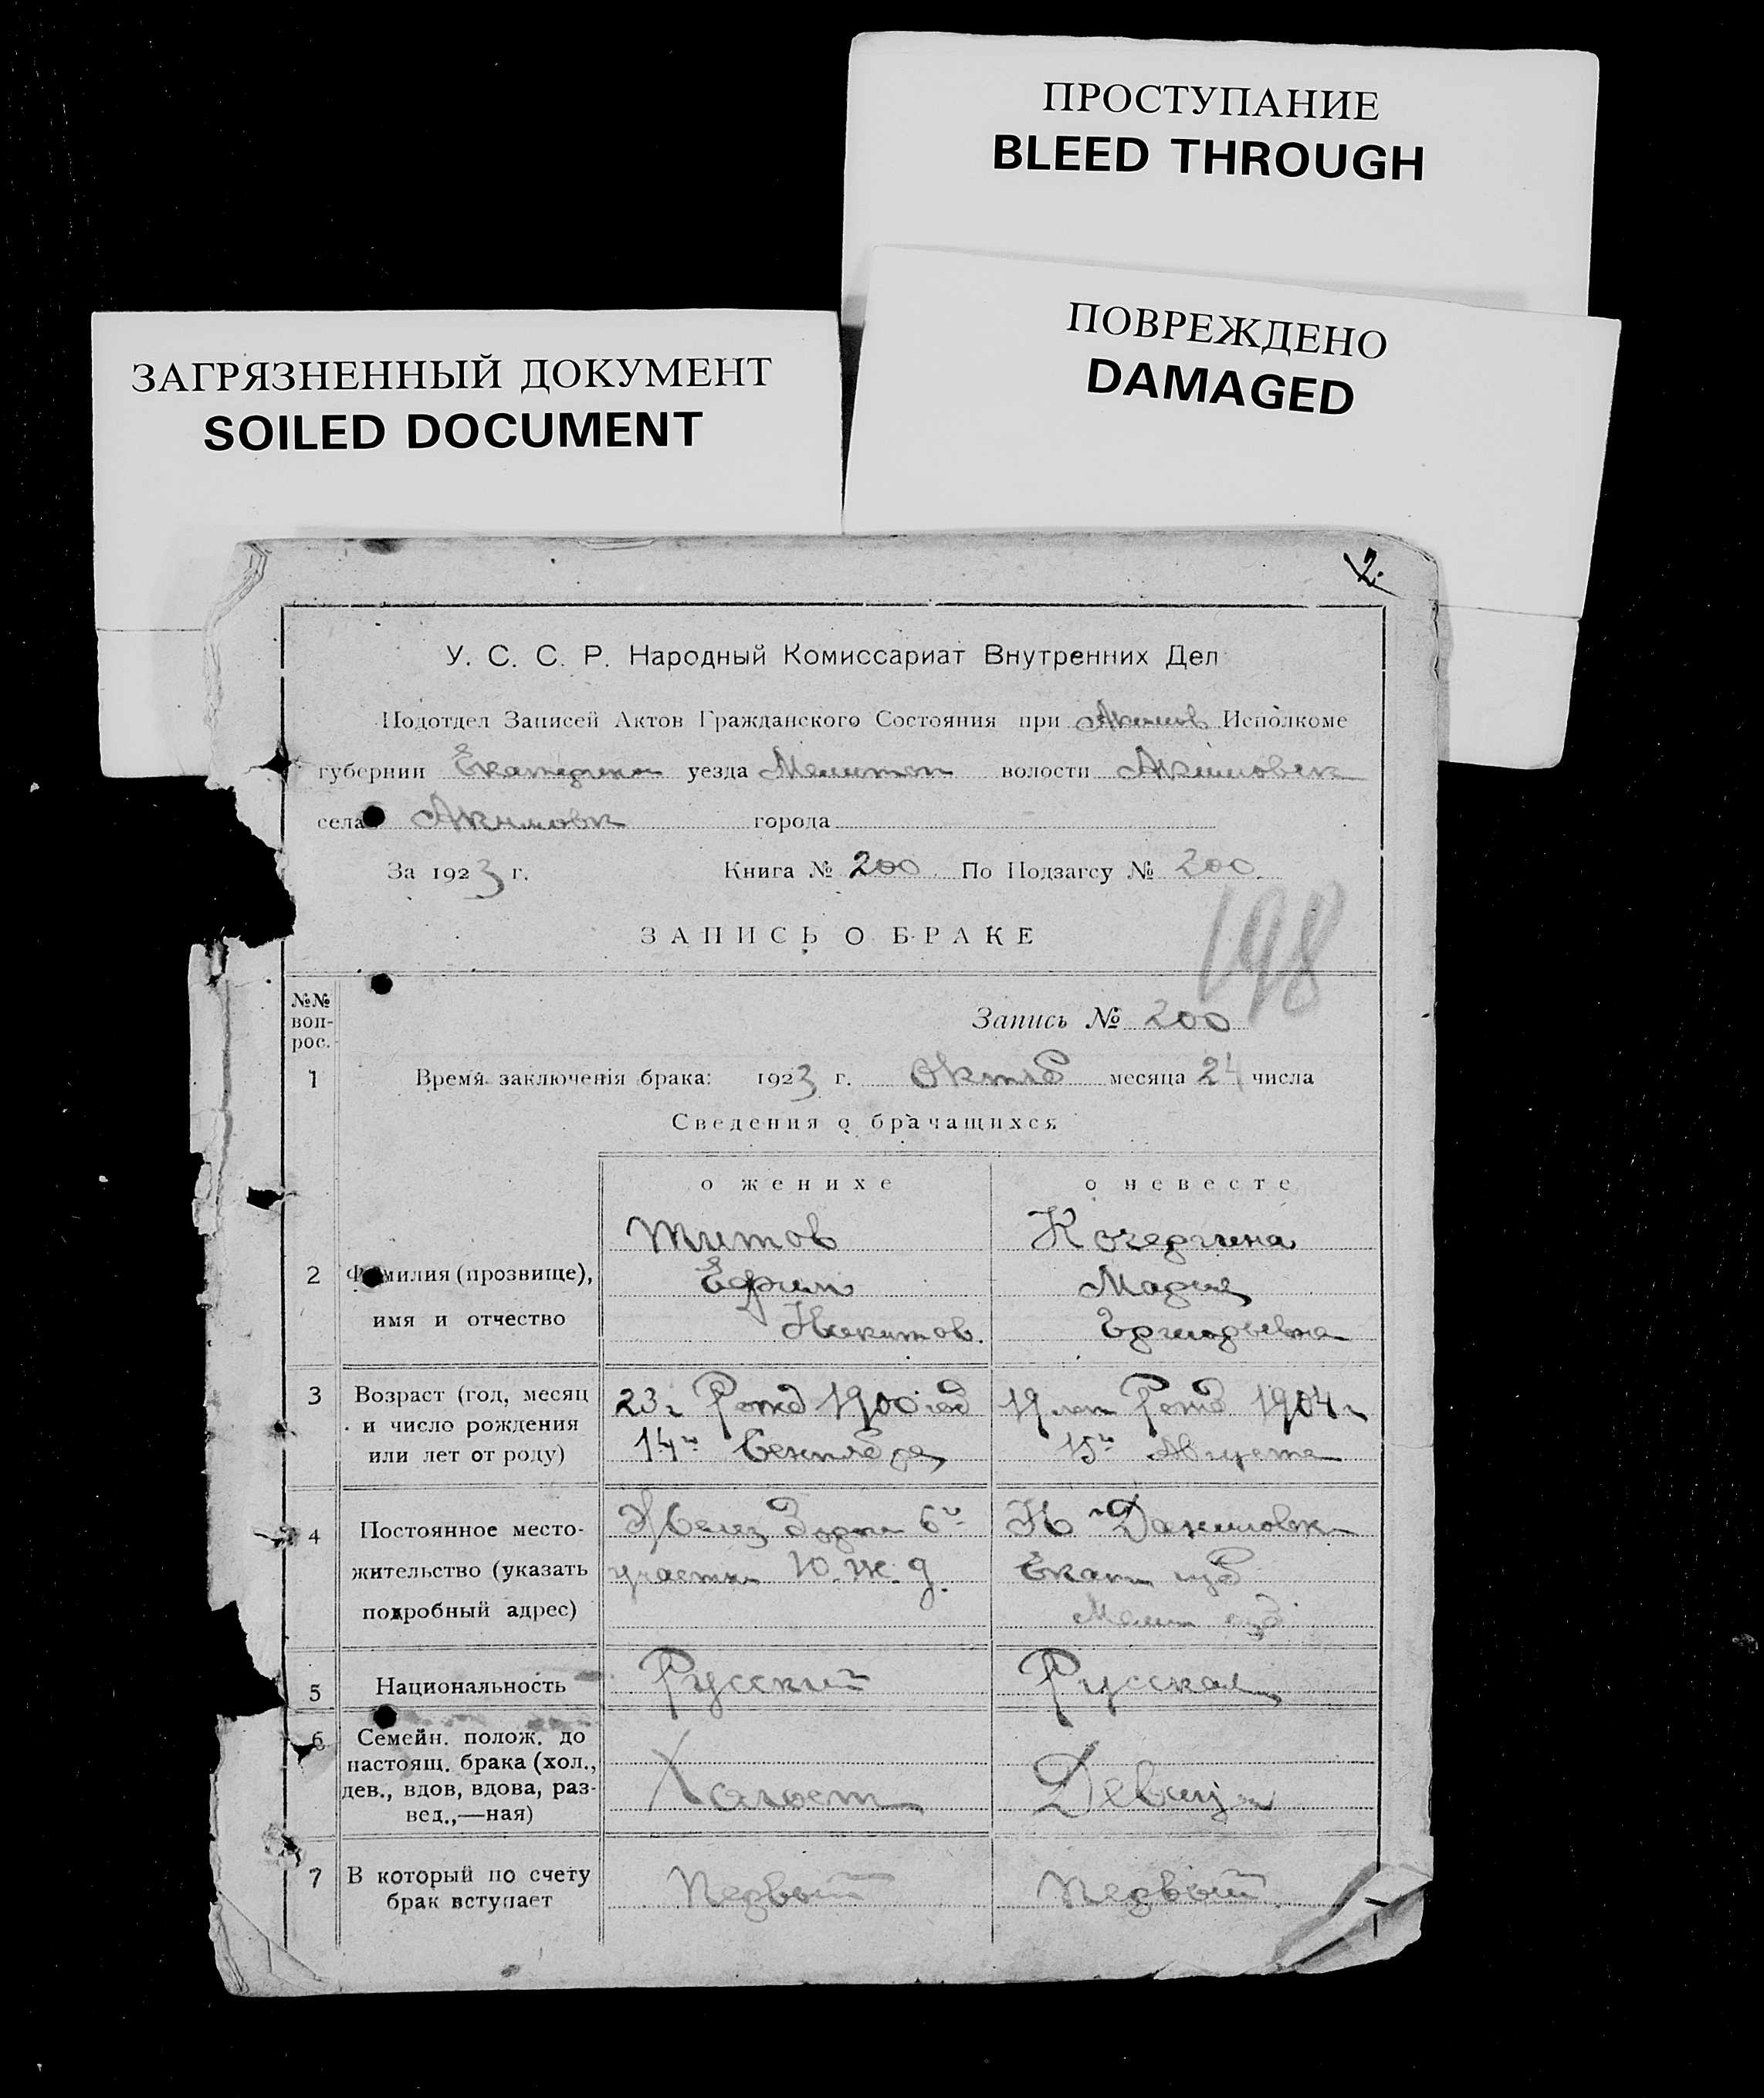 ПРОСТУПАНИЕ
BLEED THROUGH
ПОВРЕЖДЕНО
DAMAGED
ЗАГРЯЗНЕННЫЙ ДОКУМЕНТ
SOILED DOCUMENT
2.
У. С. С. Р. Народный Комиссариат Внутренних Дел
Подотдел Записей Актов Гражданского Состояния при Акимов Исполкоме
губернии Екатерин уезда Мелитоп волости Акимовск
села Акимовк города
За 1923 г. Книга № 200 По Подзагсу № 200.
ЗАПИСЬ О БРАКЕ
198
№№ воп- рос.
Запись № 200
1 Время заключенія брака: 1923 г. Октяб месяца 24 числа
Сведения о брачащихся
о женихе о невесте
Титов Кочергина
2 Фамилия (прозвище), Ефим Мария
имя и отчество Никитов.
3 Возраст (год, месяц 23 г Рожд 1900 год 19 лет Рожд 1904 г
и число рождения
или лет от роду) 14го Сентября 15го Августа
4 Постоянное место- Желез 6й Н Даниловк
жительство (указать участк Ю. Ж. д. Екат губ
подробный адрес) Мелит уезд
5 Национальность Русский Русская
6 Семейн. полож. до
настоящ. брака (хол.,
дев., вдов, вдова, раз- Холост Девица
вед.,—ная)
7 В который по счету Первый Первый
брак вступает